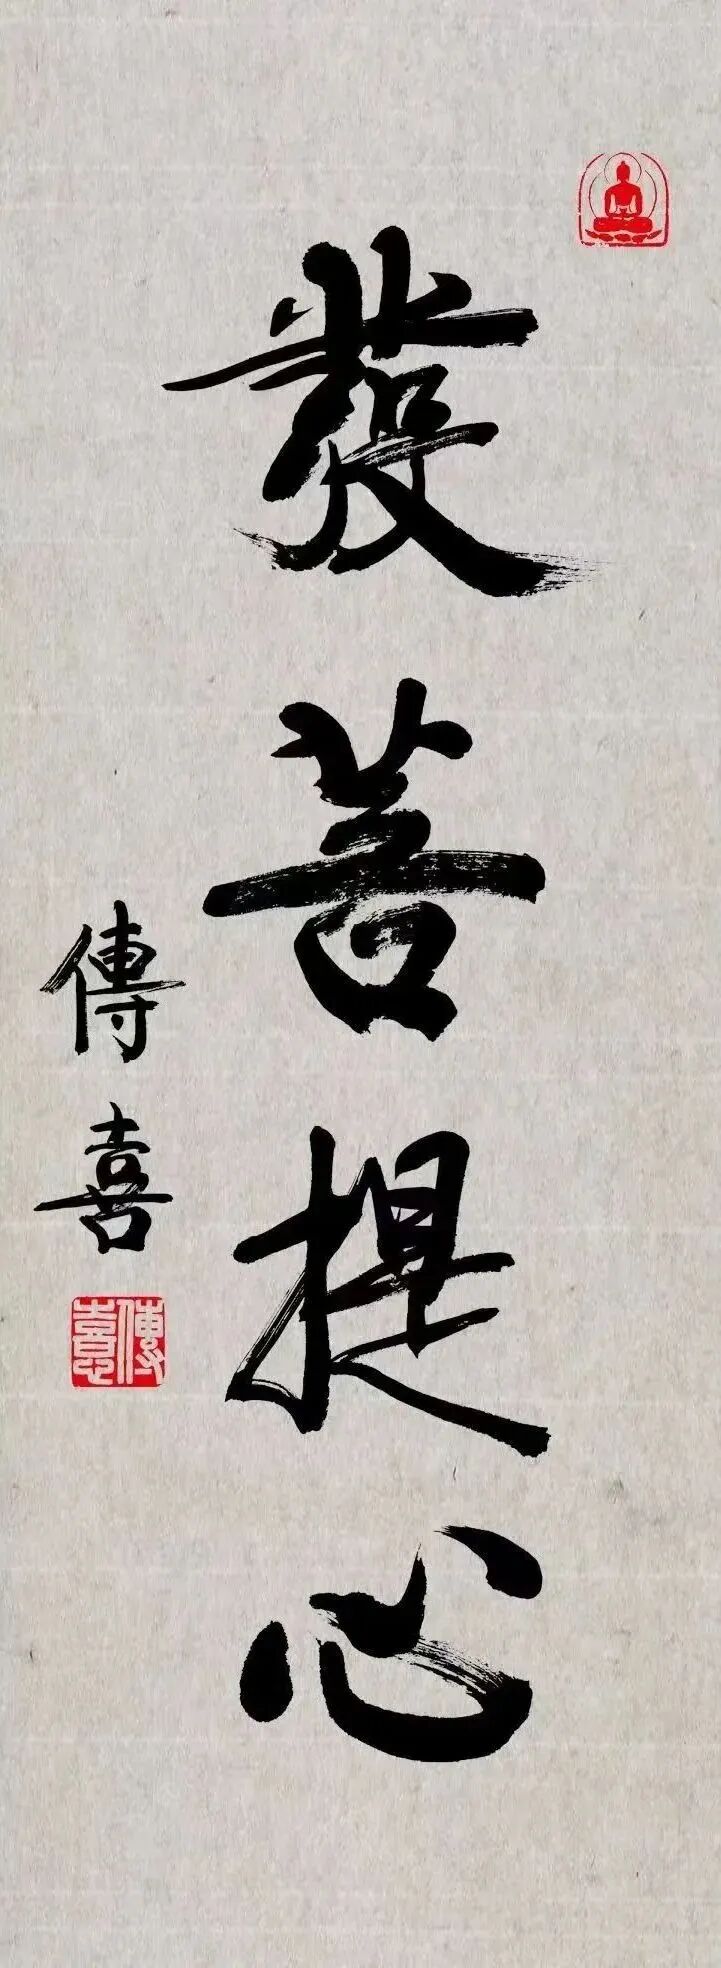 發菩提心
傳喜
傳喜